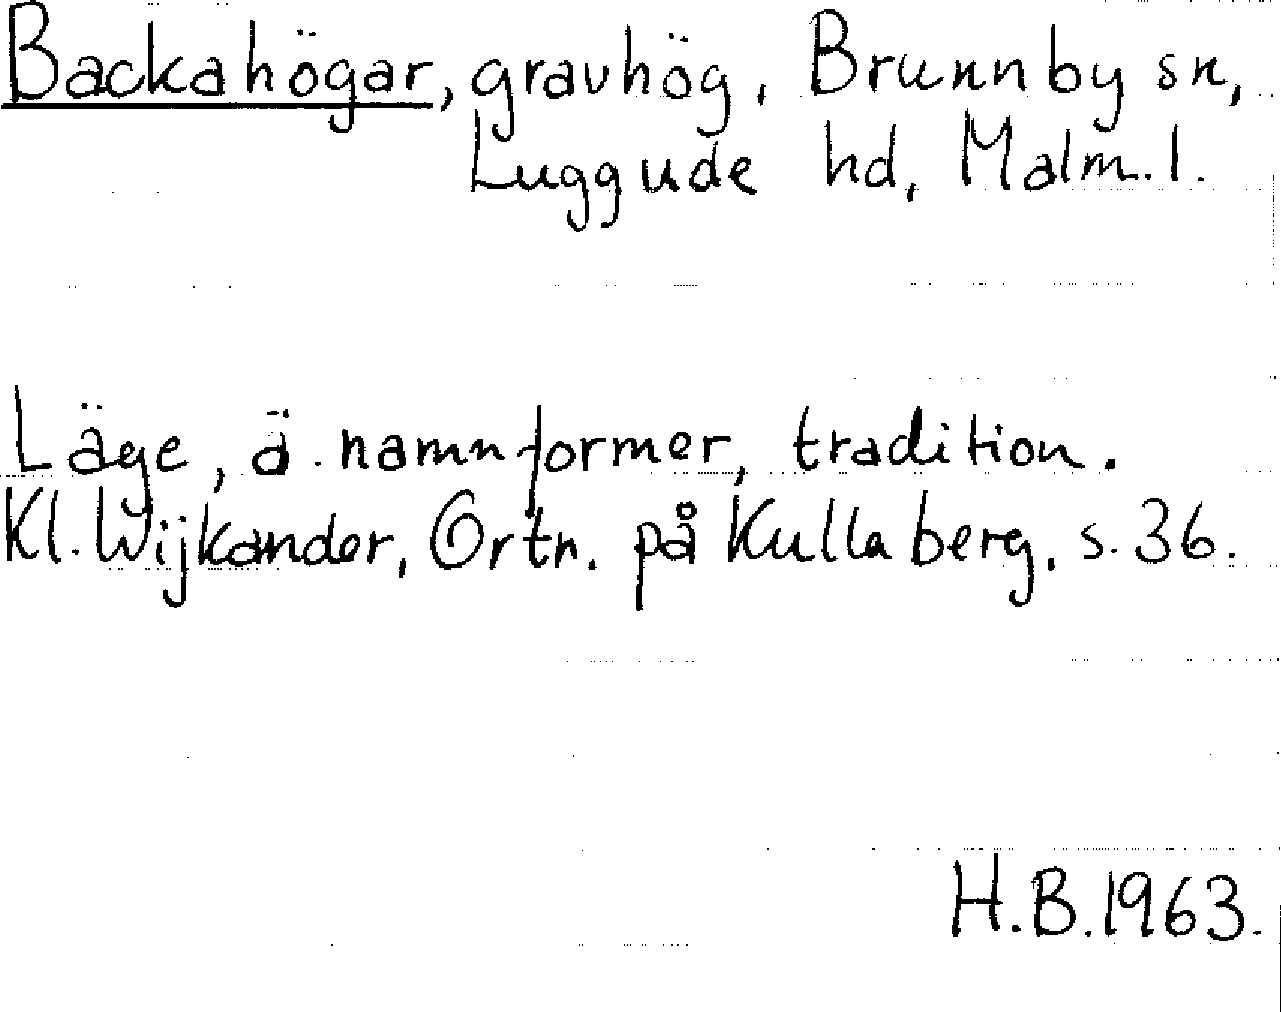 Backahögar, gravhög, Brunnby sn,
Luggude hd, Malm. l.
Läge, ä. namnformer, tradition.
Kl. Wijkander, Ortn. på Kullaberg, s. 36.
H.B. 1963.